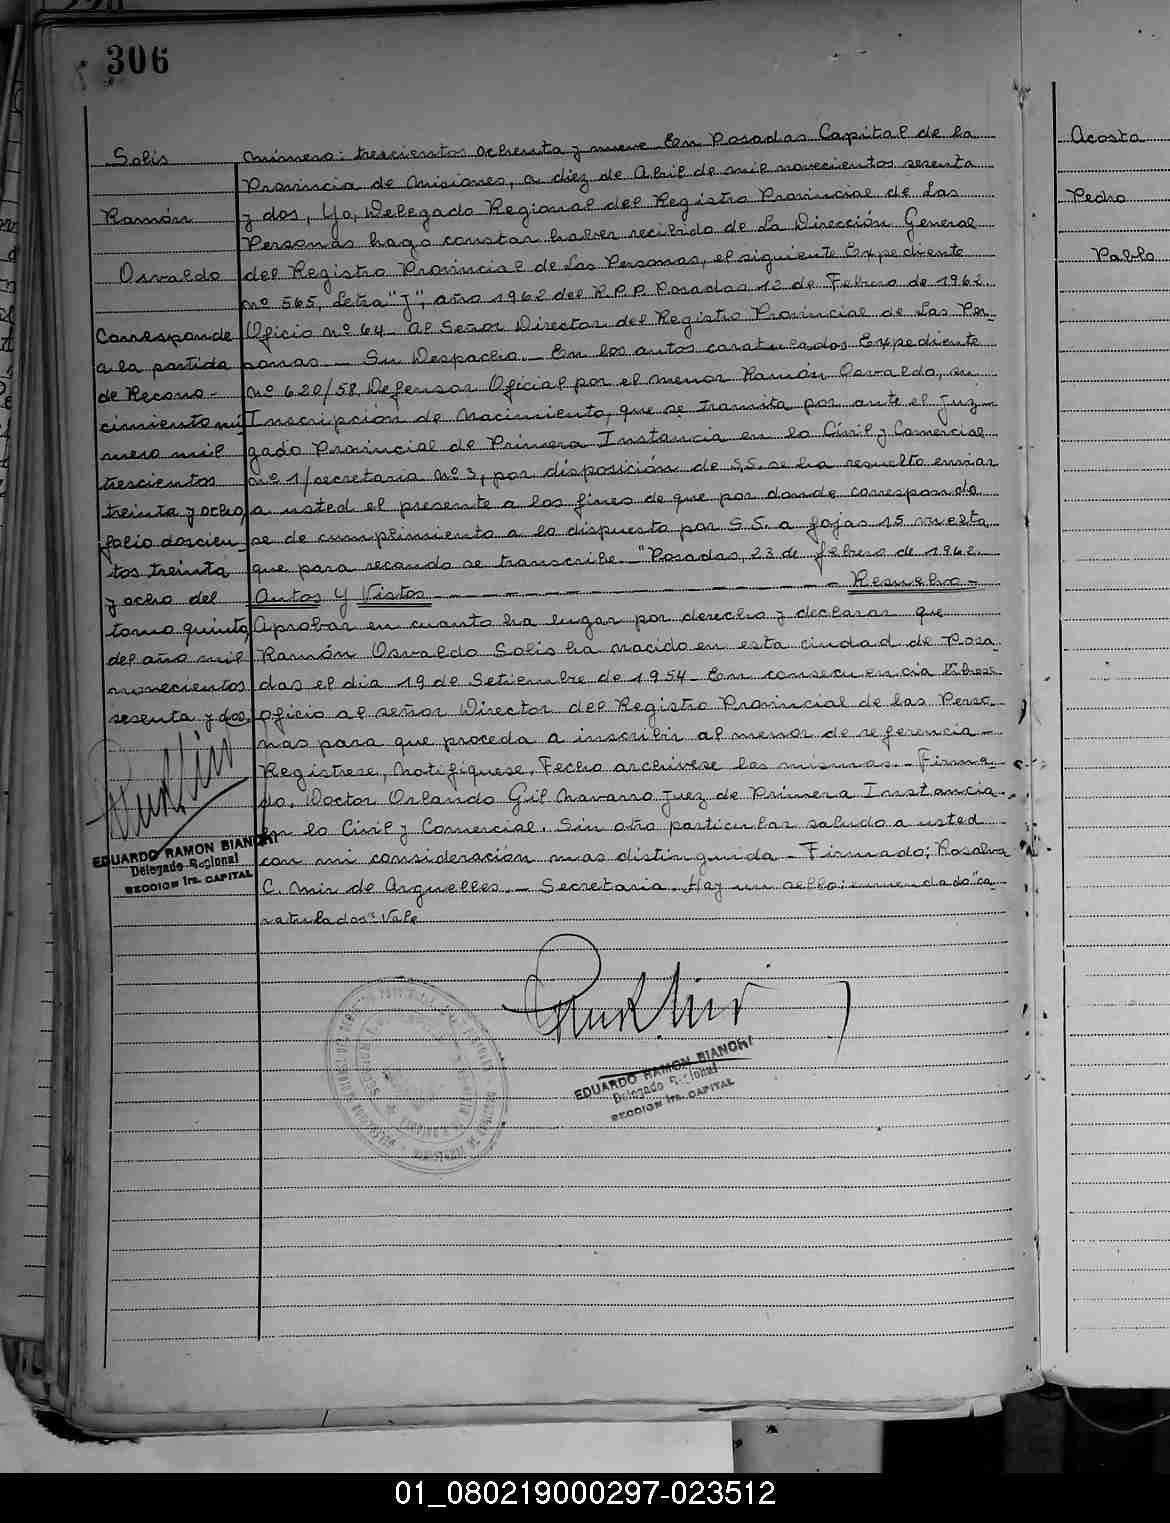 306
Solis
Ramón
Osvaldo
Corresponde
a la partida
de Recono-
cimiento nú
mero mil
trescientos
treinta y ocho,
folio doscien-
tos treinta
y ocho del
tomo quinto,
del año mil
novecientos
sesenta y dos.
EDUARDO RAMON BIANCHI
Delegado Regional
SECCION 1ra. CAPITAL
número: trescientos ochenta y nueve. En Posadas Capital de la
Provincia de Misiones, a diez de Abril de mil novecientos sesenta
y dos, Yo, Delegado Regional del Registro Provincial de Las
Personas hago constar haber recibido de La Dirección General
del Registro Provincial de Las Personas, el siguiente Expediente
nº 565, Letra "J", año 1962 del R.P.P. Posadas 12 de Febrero de 1962.
Oficio nº 64. Al Señor Director del Registro Provincial de Las Per-
sonas.- Su Despacho.- En los autos caratulados Expediente
Nº 620/58, Defensor Oficial por el menor Ramón Osvaldo, su
Inscripción de Nacimiento, que se tramita por ante el Juz-
gado Provincial de Primera Instancia en lo Civil y Comercial
nº 1/secretaria Nº 3, por disposición de S.S. se ha resuelto enviar
a usted el presente a los fines de que por donde corresponda
se de cumplimiento a lo dispuesto por S.S. a fojas 15 vuelta
que para recaudo se transcribe.- "Posadas, 23 de febrero de 1962.
Autos y Vistos - - - - - - - - - - - Resuelvo-
Aprobar en cuanto ha lugar por derecho y declarar que
Ramón Osvaldo Solis ha nacido en esta ciudad de Posa
das el dia 19 de Setiembre de 1954. En consecuencia líbrese
oficio al señor Director del Registro Provincial de las Perso-
nas para que proceda a inscribir al menor de referencia-
Regístrese, Notifíquese, Fecho archívese los mismos.- Firma-
do. Doctor Orlando Gil Navarro Juez de Primera Instancia
en lo Civil y Comercial. Sin otro particular saludo a usted
con mi consideración mas distinguida - Firmado; Rosalva
C. Mir de Arguelles.- Secretaria. Hay un sello: enmendado "ca-
ratulados" Vale
EDUARDO RAMON BIANCHI
Delegado Regional
SECCION 1ra. CAPITAL
Acosta
Pedro
Pablo
01_080219000297-023512